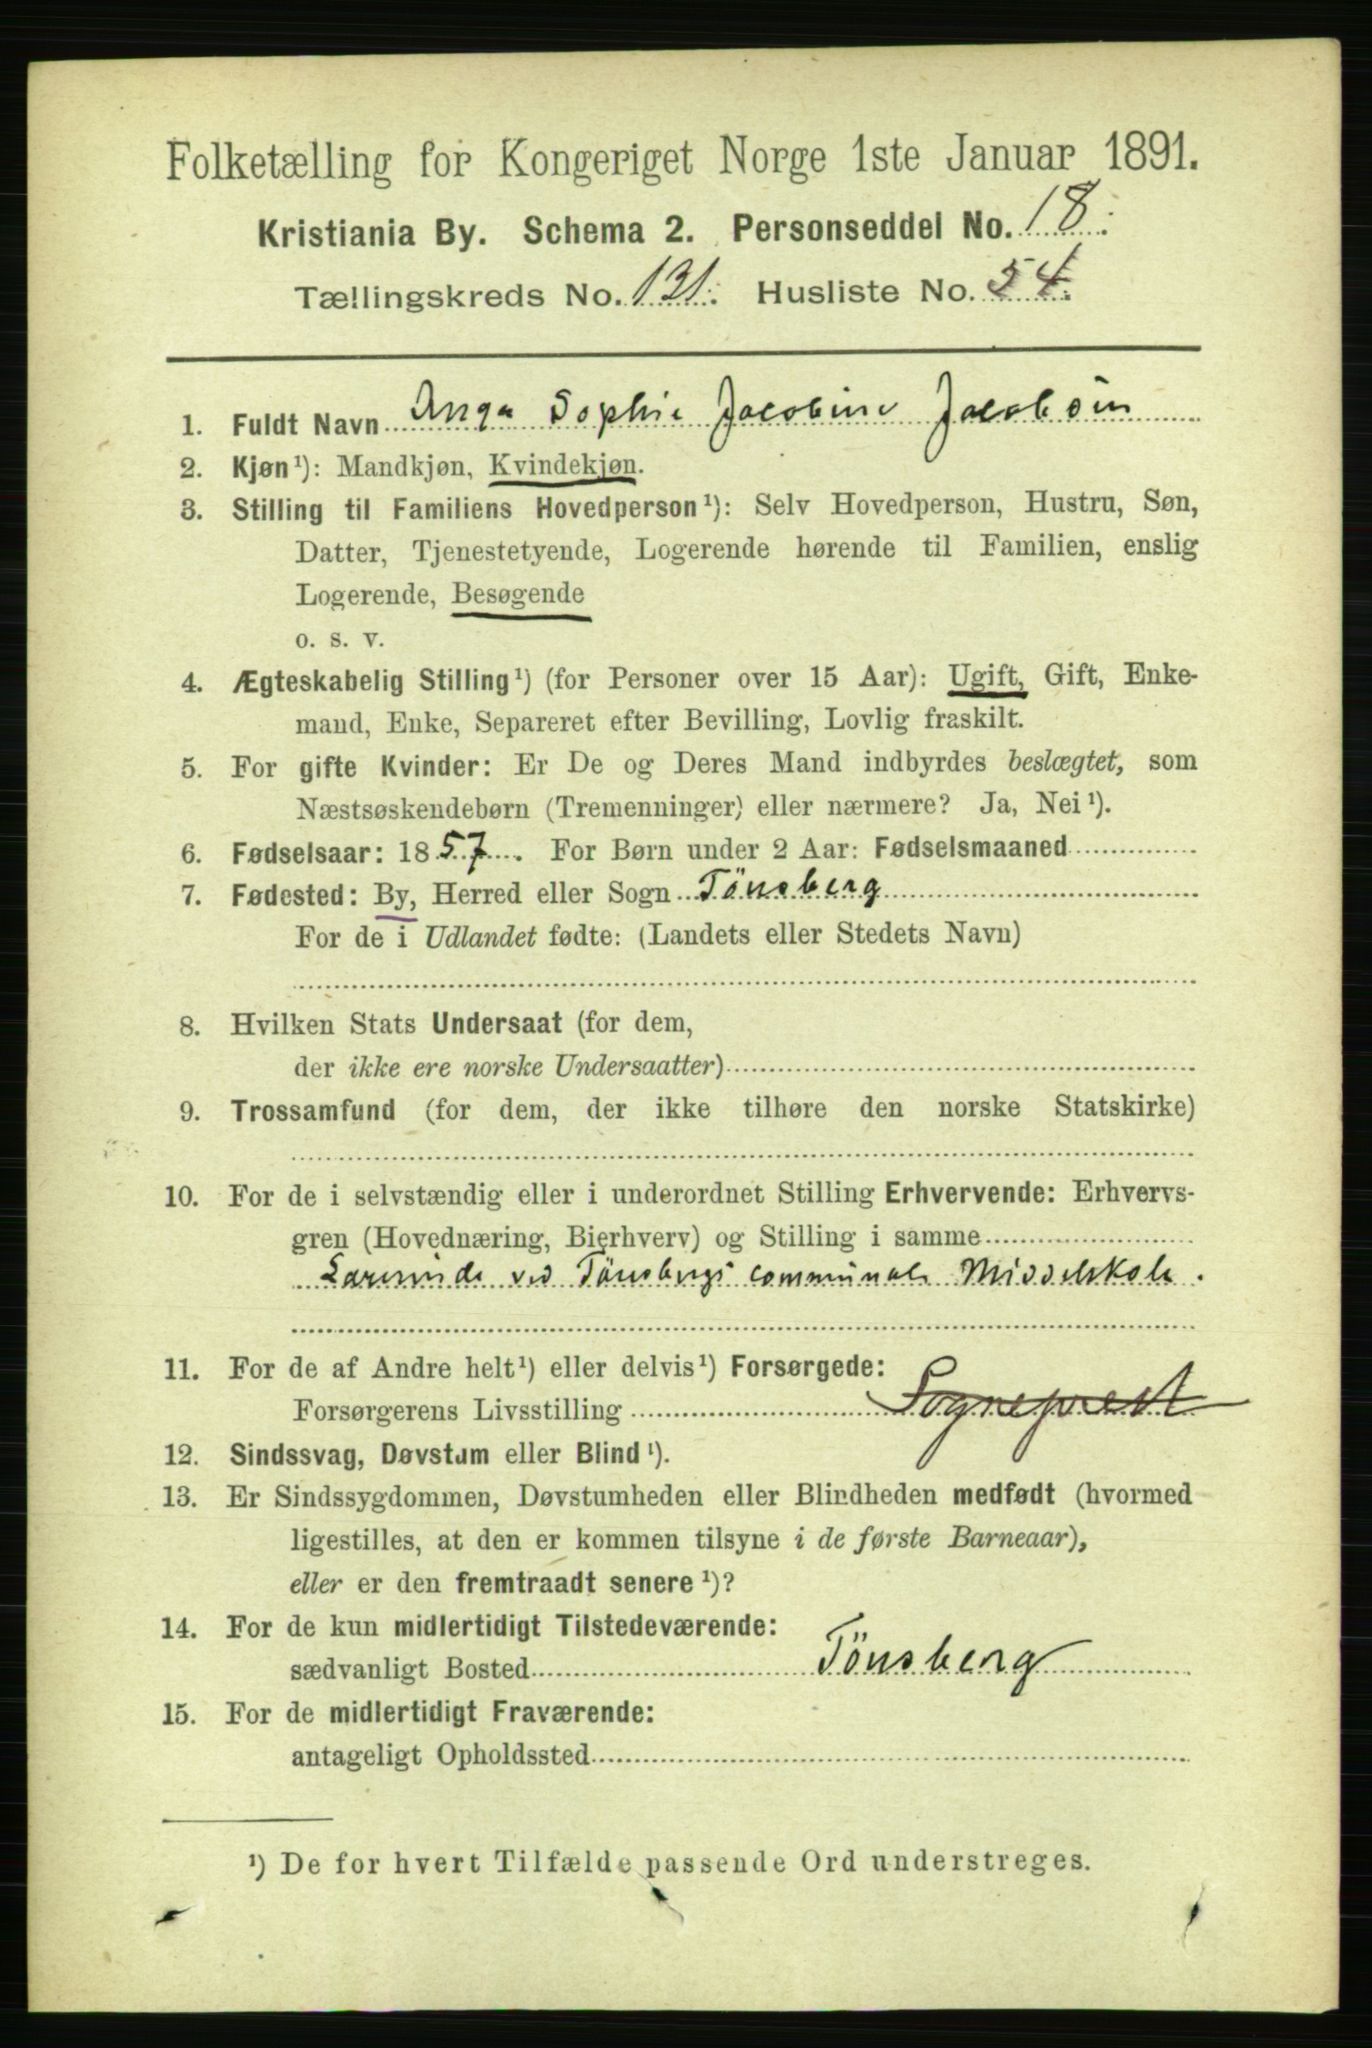 Folketælling for Kongeriget Norge 1ste Januar 1891.
Kristiania By. Schema 2. Personseddel No. 18.
Tællingskreds No. 131. Husliste No. 54.
1. Fuldt Navn Inga Sophie Jacobine Jacobsen
2. Kjøn¹): Mandkjøn, Kvindekjøn.
3. Stilling til Familiens Hovedperson¹): Selv Hovedperson, Hustru, Søn,
Datter, Tjenestetyende, Logerende hørende til Familien, enslig
Logerende, Besøgende
o. s. v.
4. Ægteskabelig Stilling¹) (for Personer over 15 Aar): Ugift, Gift, Enke-
mand, Enke, Separeret efter Bevilling, Lovlig fraskilt.
5. For gifte Kvinder: Er De og Deres Mand indbyrdes beslægtet, som
Næstsøskendebørn (Tremenninger) eller nærmere? Ja, Nei¹).
6. Fødselsaar: 1857. For Børn under 2 Aar: Fødselsmaaned
7. Fødested: By, Herred eller Sogn Tönsberg
For de i Udlandet fødte: (Landets eller Stedets Navn)
8. Hvilken Stats Undersaat (for dem,
der ikke ere norske Undersaatter)
9. Trossamfund (for dem, der ikke tilhøre den norske Statskirke)
10. For de i selvstændig eller i underordnet Stilling Erhvervende: Erhvervs-
gren (Hovednæring, Bierhverv) og Stilling i samme
Lærerinde ved Tönsbergs communale Middelskole.
11. For de af Andre helt¹) eller delvis¹) Forsørgede:
Forsørgerens Livsstilling Sogneprest
12. Sindssvag, Døvstum eller Blind¹).
13. Er Sindssygdommen, Døvstumheden eller Blindheden medfødt (hvormed
ligestilles, at den er kommen tilsyne i de første Barneaar),
eller er den fremtraadt senere¹)?
14. For de kun midlertidigt Tilstedeværende:
sædvanligt Bosted Tönsberg
15. For de midlertidigt Fraværende:
antageligt Opholdssted
¹) De for hvert Tilfælde passende Ord understreges.